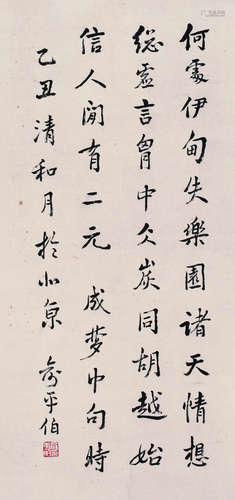 何處伊甸失樂園諸天情想
總虛言胷中仌炭同胡越始
信人間有二元 成夢中句時
乙丑清和月於北京 俞平伯